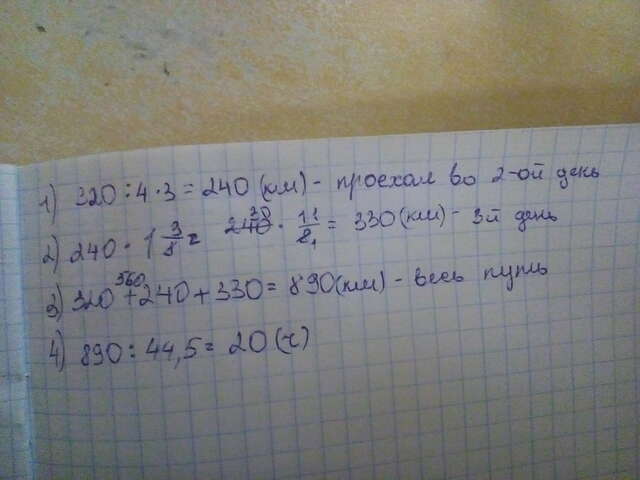 1) 320 : 4 · 3 = 240 (км) - проехал во 2-ой день
2) 240 · 1 3/8 = 240 30 · 11/8 1 = 330 (км) - 3й день
3) 320 + 240 560 + 330 = 890 (км) - весь путь
4) 890 : 44,5 = 20 (ч)